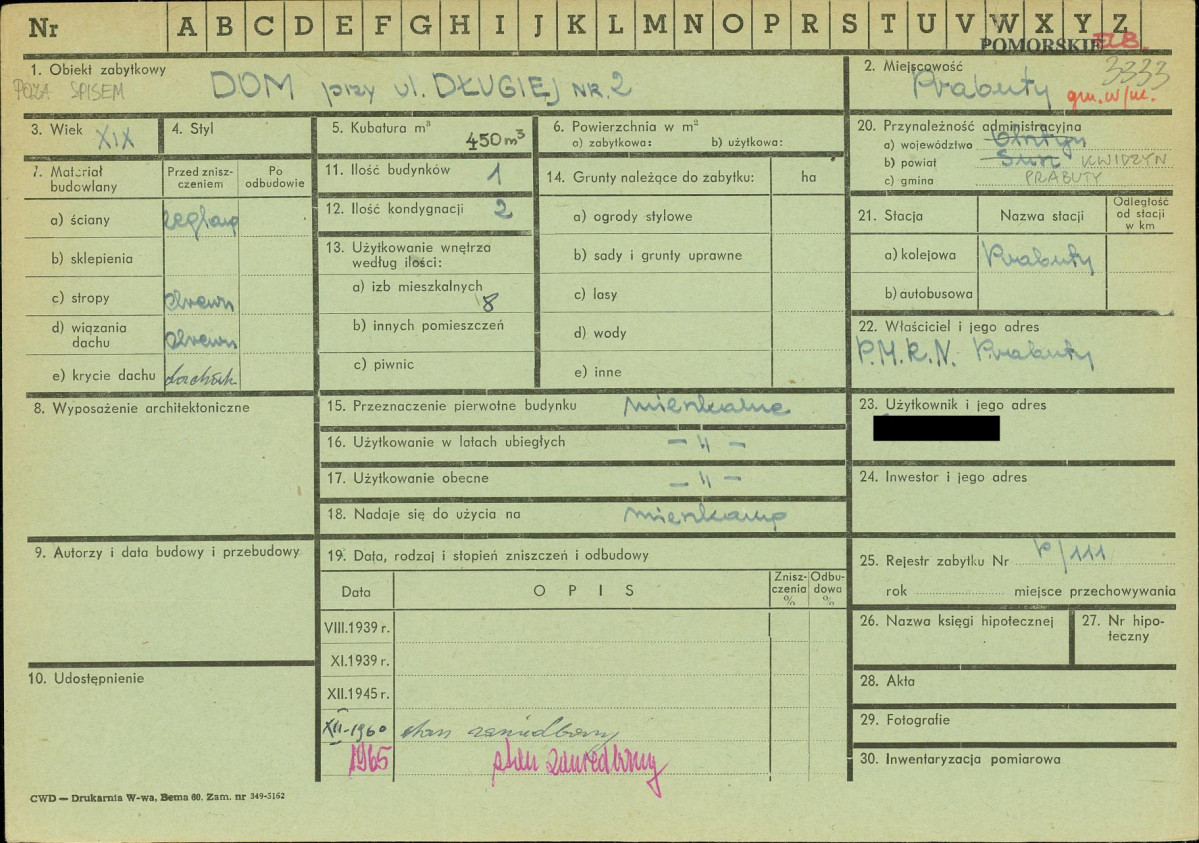 Nr A B C D E F G H I J K L M N O P R S T U V W X Y Z
POMORSKIE ELB.
3333
1. Obiekt zabytkowy DOM przy ul. DŁUGIEJ NR. 2
POZA SPISEM
2. Miejscowość
Prabuty gm. w/m.
3. Wiek XIX
4. Styl
5. Kubatura m³ 450 m³
6. Powierzchnia w m²
a) zabytkowa: b) użytkowa:
7. Materiał budowlany
Przed zniszczeniem
Po odbudowie
a) ściany
b) sklepienia
c) stropy drewn
d) wiązania dachu drewn
e) krycie dachu
8. Wyposażenie architektoniczne
9. Autorzy i data budowy i przebudowy
10. Udostępnienie
11. Ilość budynków 1
12. Ilość kondygnacji 2
13. Użytkowanie wnętrza według ilości:
a) izb mieszkalnych 8
b) innych pomieszczeń
c) piwnic
14. Grunty należące do zabytku: ha
a) ogrody stylowe
b) sady i grunty uprawne
c) lasy
d) wody
e) inne
15. Przeznaczenie pierwotne budynku mieszkalne
16. Użytkowanie w latach ubiegłych — " —
17. Użytkowanie obecne — " —
18. Nadaje się do użycia na
19. Data, rodzaj i stopień zniszczeń i odbudowy
Data
OPIS
Zniszczenia %
Odbudowa %
VIII.1939 r.
XI.1939 r.
XII.1945 r.
XII-1960 stan zaniedbany
1965 stan zaniedbany
20. Przynależność administracyjna
a) województwo Olsztyn
b) powiat Susz KWIDZYN
c) gmina PRABUTY
21. Stacja
Nazwa stacji
Odległość od stacji w km
a) kolejowa Prabuty
b) autobusowa
22. Właściciel i jego adres
P.M.R.N. Prabuty
23. Użytkownik i jego adres
24. Inwestor i jego adres
25. Rejestr zabytku Nr P/111
rok miejsce przechowywania
26. Nazwa księgi hipotecznej
27. Nr hipoteczny
28. Akta
29. Fotografie
30. Inwentaryzacja pomiarowa
CWD — Drukarnia W-wa, Bema 60. Zam. nr 349-5162